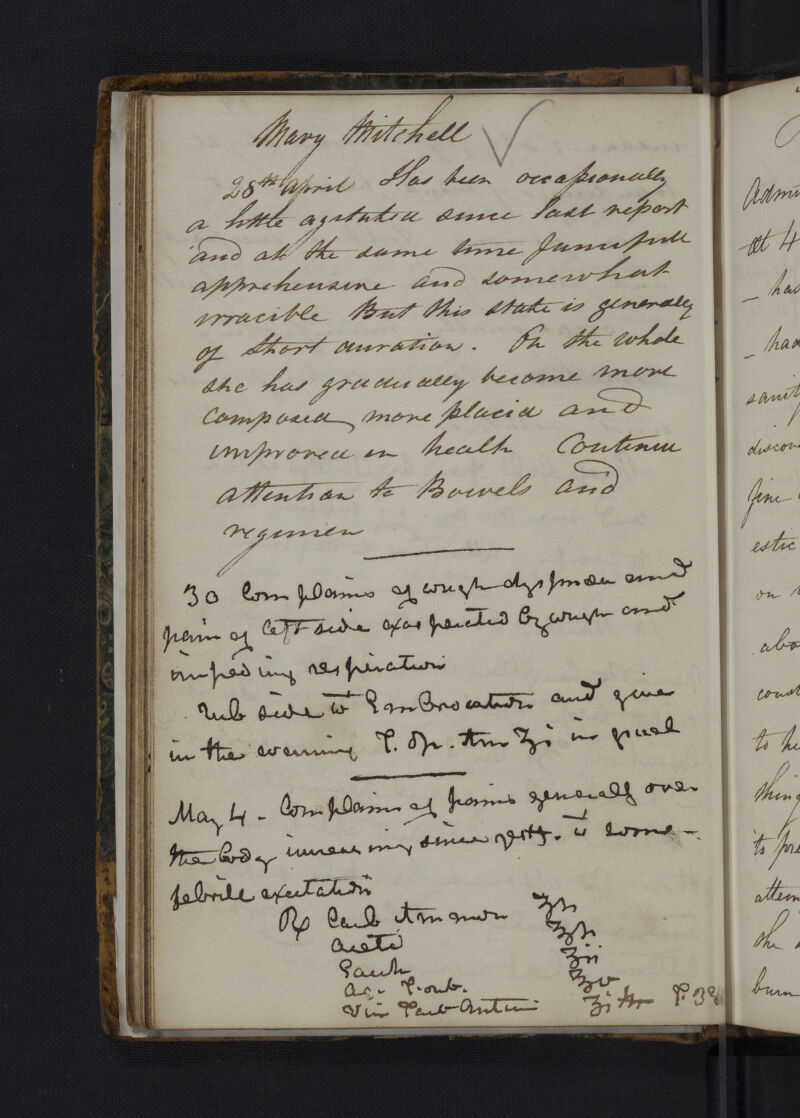 Mary Mitchell
28th April Has been occasionally
a little agitated since last report
and at the same time
apprehensive and somewhat
irracible But this state is generally
of short duration. On the whole
she has gradually become more
composed, more placid and
improved in health Continue
attention to Bowels and
regimen
30 Complains of cough dyspnœa and
pain of left side exasperated by cough and
impeding respiration
Rub side wt Embrocation and give
in the evening T. Op. Am ʒi in gruel
May 4 - Complains of pains generally over
the body increasing since yesty. wt some
febrile excitation
℞ Carb Ammon
Aceti
Sacch
Aq.
Vin Tart Antim
Admi
at 4
- had
- had
sanity
discov
fine
estic
on
abo
const
to he
thing
to pre
attem
the
burn